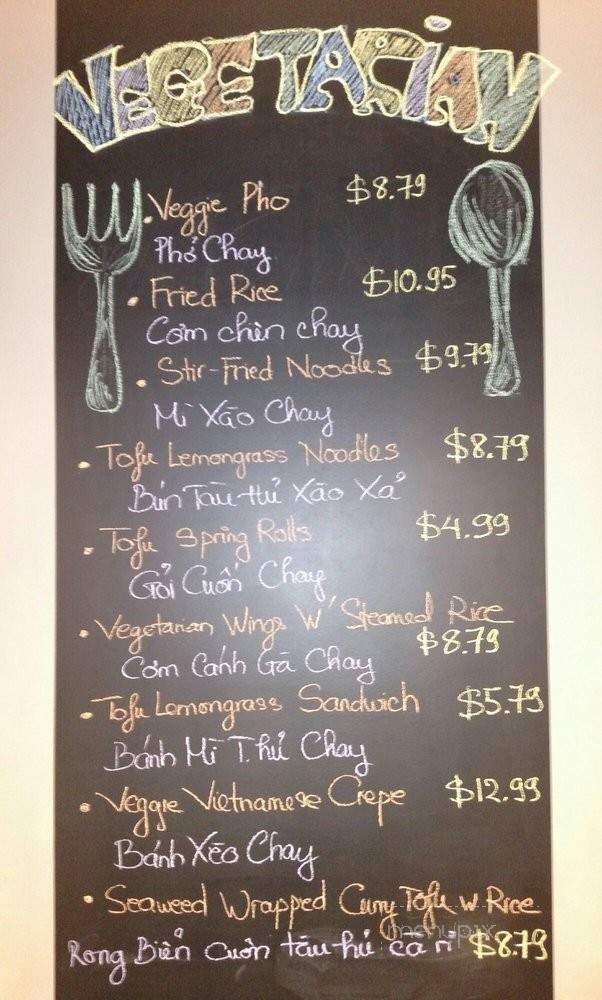 VEGETARIAN
Veggie Pho $8.79
Phở Chay
Fried Rice $10.95
Cơm chiên chay
Stir-Fried Noodles $9.79
Mì Xáo Chay
Tofu Lemongrass Noodles $8.79
Bún Tàu-Hủ Xáo Xả
Tofu Spring Rolls $4.99
Gỏi Cuốn Chay
Vegetarian Wings W/ Steamed Rice
$8.79
Cơm Cánh Gà Chay
Tofu Lemongrass Sandwich $5.79
Bánh Mì T.Hủ Chay
Veggie Vietnamese Crepe $12.99
Bánh Xèo Chay
Seaweed Wrapped Curry Tofu w Rice
menupix
Rong Biển Cuốn tàu-hủ cà ri $8.79